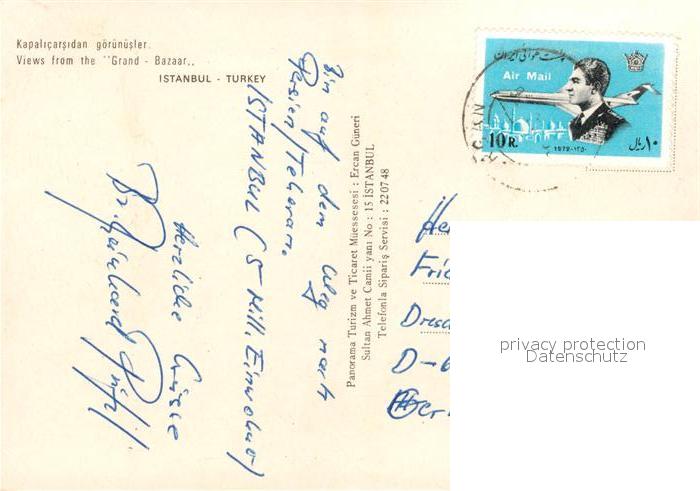 Kapalıçarşıdan görünüşler.
Views from the "Grand - Bazaar,,
ISTANBUL - TURKEY
Bin auf dem Weg nach
Persien/Teheran.
ISTANBUL (5 Mill. Einwohner)
Herzliche Grüsse
Panorama Turizm ve Ticaret Müessesesi : Ercan Güneri
Sultan Ahmet Camii yanı No : 15 İSTANBUL
Telefonla Sipariş Servisi : 22 07 48
پست هوائی ایران
Air Mail
10 R.
1972-۱۳۵۰
۱۰ ریال
Dresd
D-6
Ger
privacy protection
Datenschutz